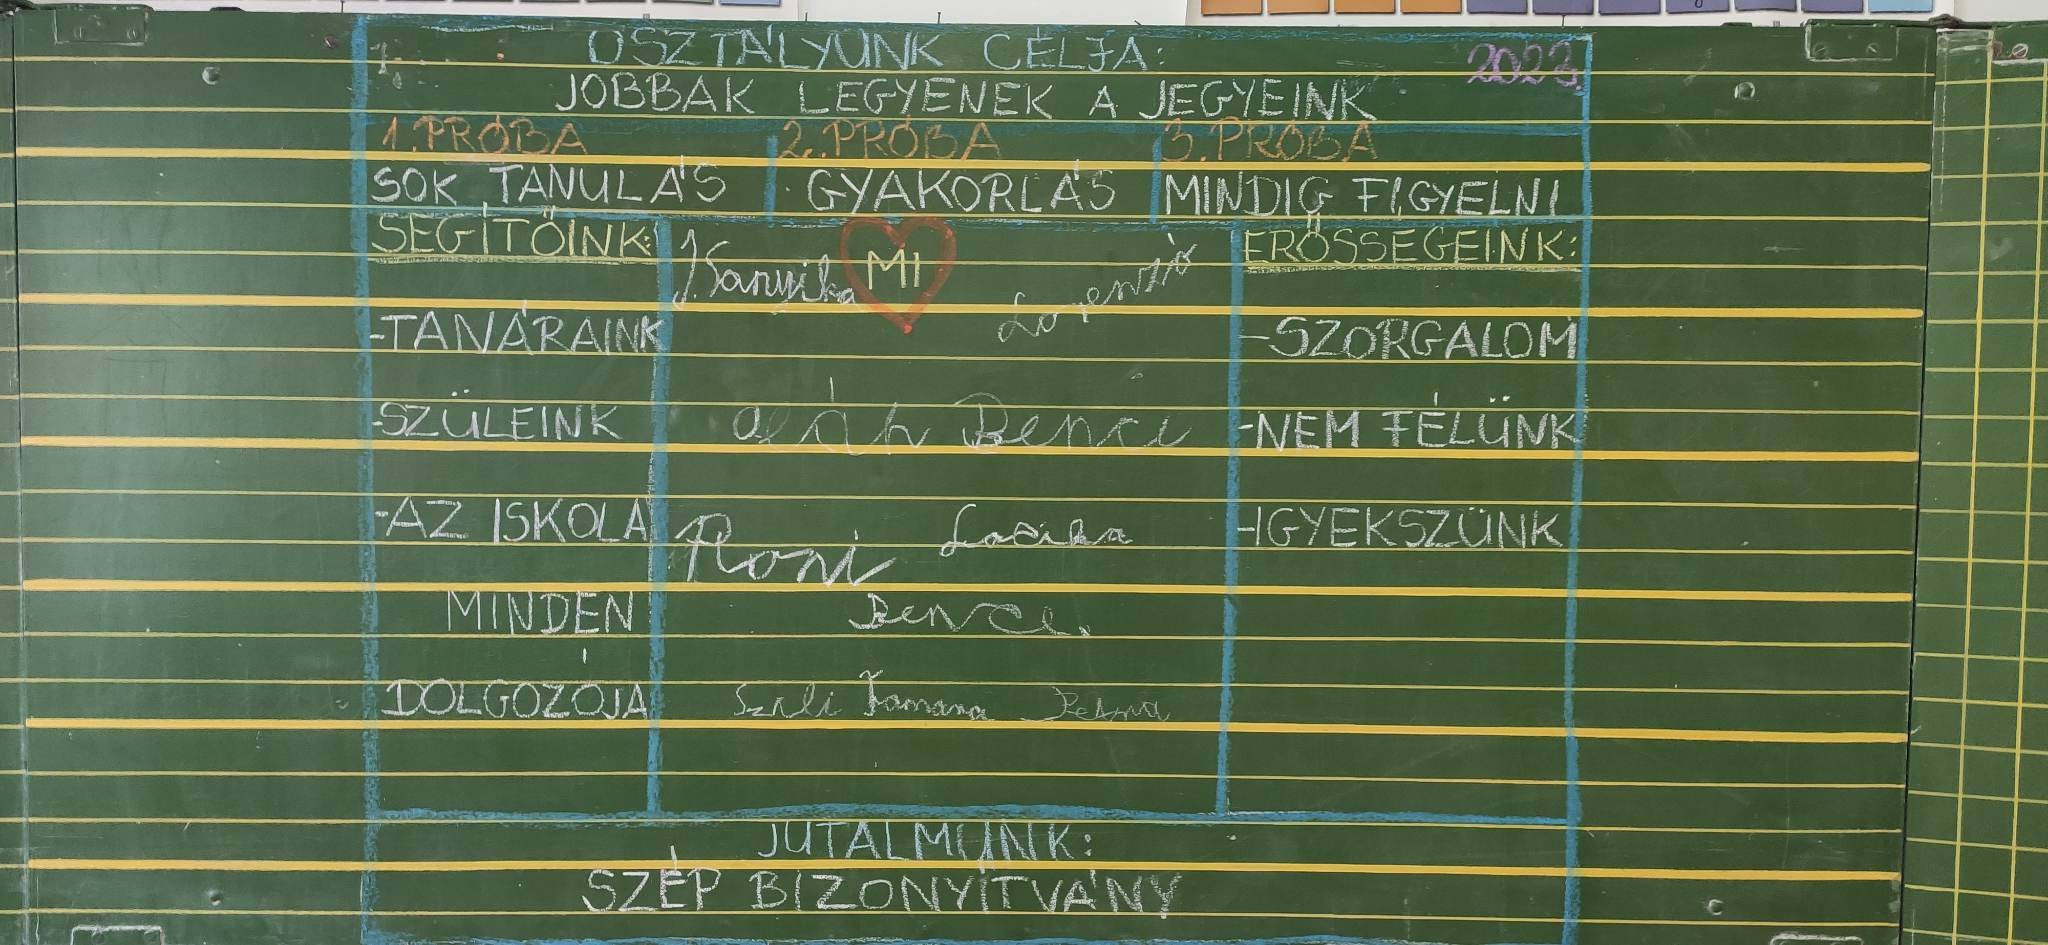 OSZTÁLYUNK CÉLJA:
2023.
JOBBAK LEGYENEK A JEGYEINK
1. PRÓBA 2. PRÓBA 3. PRÓBA
SOK TANULÁS GYAKORLÁS MINDIG FIGYELNI
SEGÍTŐINK:
-TANÁRAINK
-SZÜLEINK
-AZ ISKOLA
MINDEN
DOLGOZÓJA
MI
J. Sanyika
Lorenzió
Oláh Benci
Roni Lacika
Bence.
Szeli Tamara Petra
ERŐSSÉGEINK:
-SZORGALOM
-NEM FÉLÜNK
-IGYEKSZÜNK
JUTALMUNK:
SZÉP BIZONYÍTVÁNY